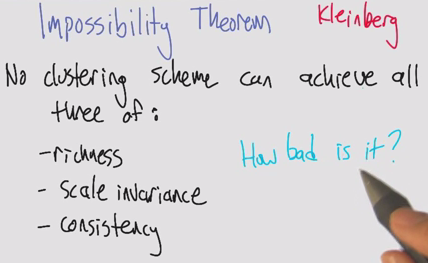 Impossibility Theorem Kleinberg
No clustering scheme can achieve all
three of:
-richness
- scale invariance
- consistency
How bad is it?